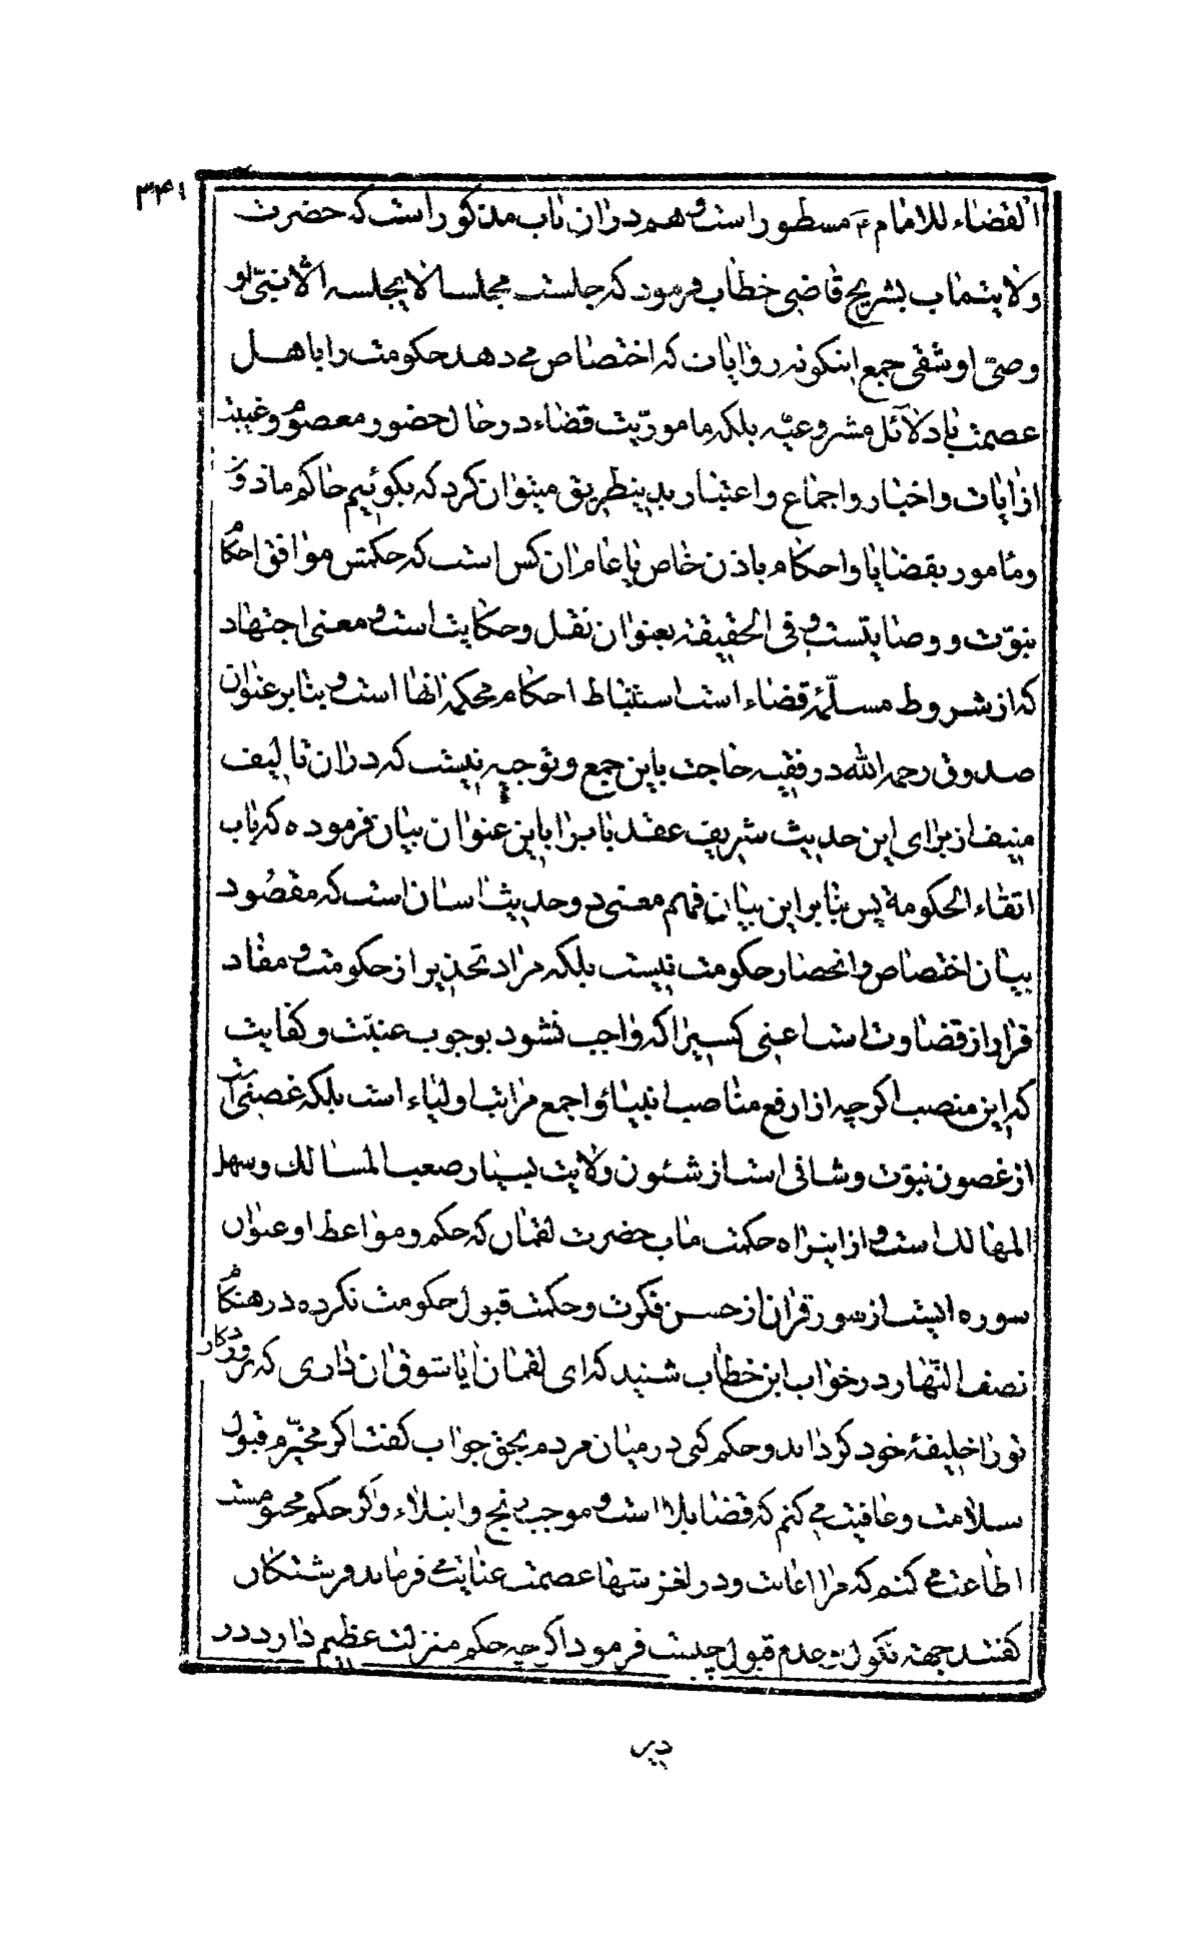 ۳۴۱
القضاء للامام ع مسطور است و هم در ان باب مذکور است که حضرت
ولایتماب بشریح قاضی خطاب فرمود که جلست مجلسا لا یجلسه الا نبیّ او
وصیّ او شقی جمع اینکونه روایات که اختصاص می دهد حکومت را باهل
عصمت با دلائل مشروعیّه بلکه ماموریّت قضاء در حال حضور معصوم و غیبت
از ایات و اخبار و اجماع و اعتبار بدینطریق میتوان کرد که بکوئیم حاکم ماذون
و مامور بقضایا و احکام باذن خاص یا عام ان کس است که حکمش موافق احکام
نبوّت و وصایتست و فی الحقیقه بعنوان نقل و حکایت است و معنی اجتهاد
که از شروط مسلّمۀ قضاء است استنباط احکام محکمه انها است و بنابر عنوان
صدوق رحمه الله در فقیه حاجت باین جمع و توجیه نیست که در ان تالیف
منیف از برای این حدیث شریف عقد باب را باین عنوان بیان فرموده که باب
اتقاء الحکومة پس بنابر این بیان فهم معنی دو حدیث اسان است که مقصود
بیان اختصاص و انحصار حکومت نیست بلکه مراد تحذیر از حکومت و مفاد
فرار از قضاوت است اعنی کسیرا که واجب نشود بوجوب عینیّت و کفایت
که این منصب اکرچه از ارفع مناصب انبیاء و اجمع مراتب اولیاء است بلکه غصنی است
از غصون نبوّت و شانی است از شئون ولایت بسیار صعب المسالک و سهل
المهالک است و از اینراه حکمت ماب حضرت لقمان که حکم و مواعظ او عنوان
سوره ایست از سور قران از حسن فکرت و حکمت قبول حکومت نکرده در هنکام
نصف النهار در خواب این خطاب شنید که ای لقمان ایا شوق ان داری که پروردکار
تو را خلیفۀ خود کرداند و حکم کنی در میان مردم بحق جواب کفت اکر مخیّرم قبول
سلامت و عافیت می کنم که قضا بلا است و موجب رنج و ابتلاء و اکر حکم محتومست
اطاعت می کنم که مرا اعانت و در لغزشها عصمت عنایت می فرماید فرشتکان
کفتند جهة نکول و عدم قبول چیست فرمود اکرچه حکم منزلت عظیم دارد در